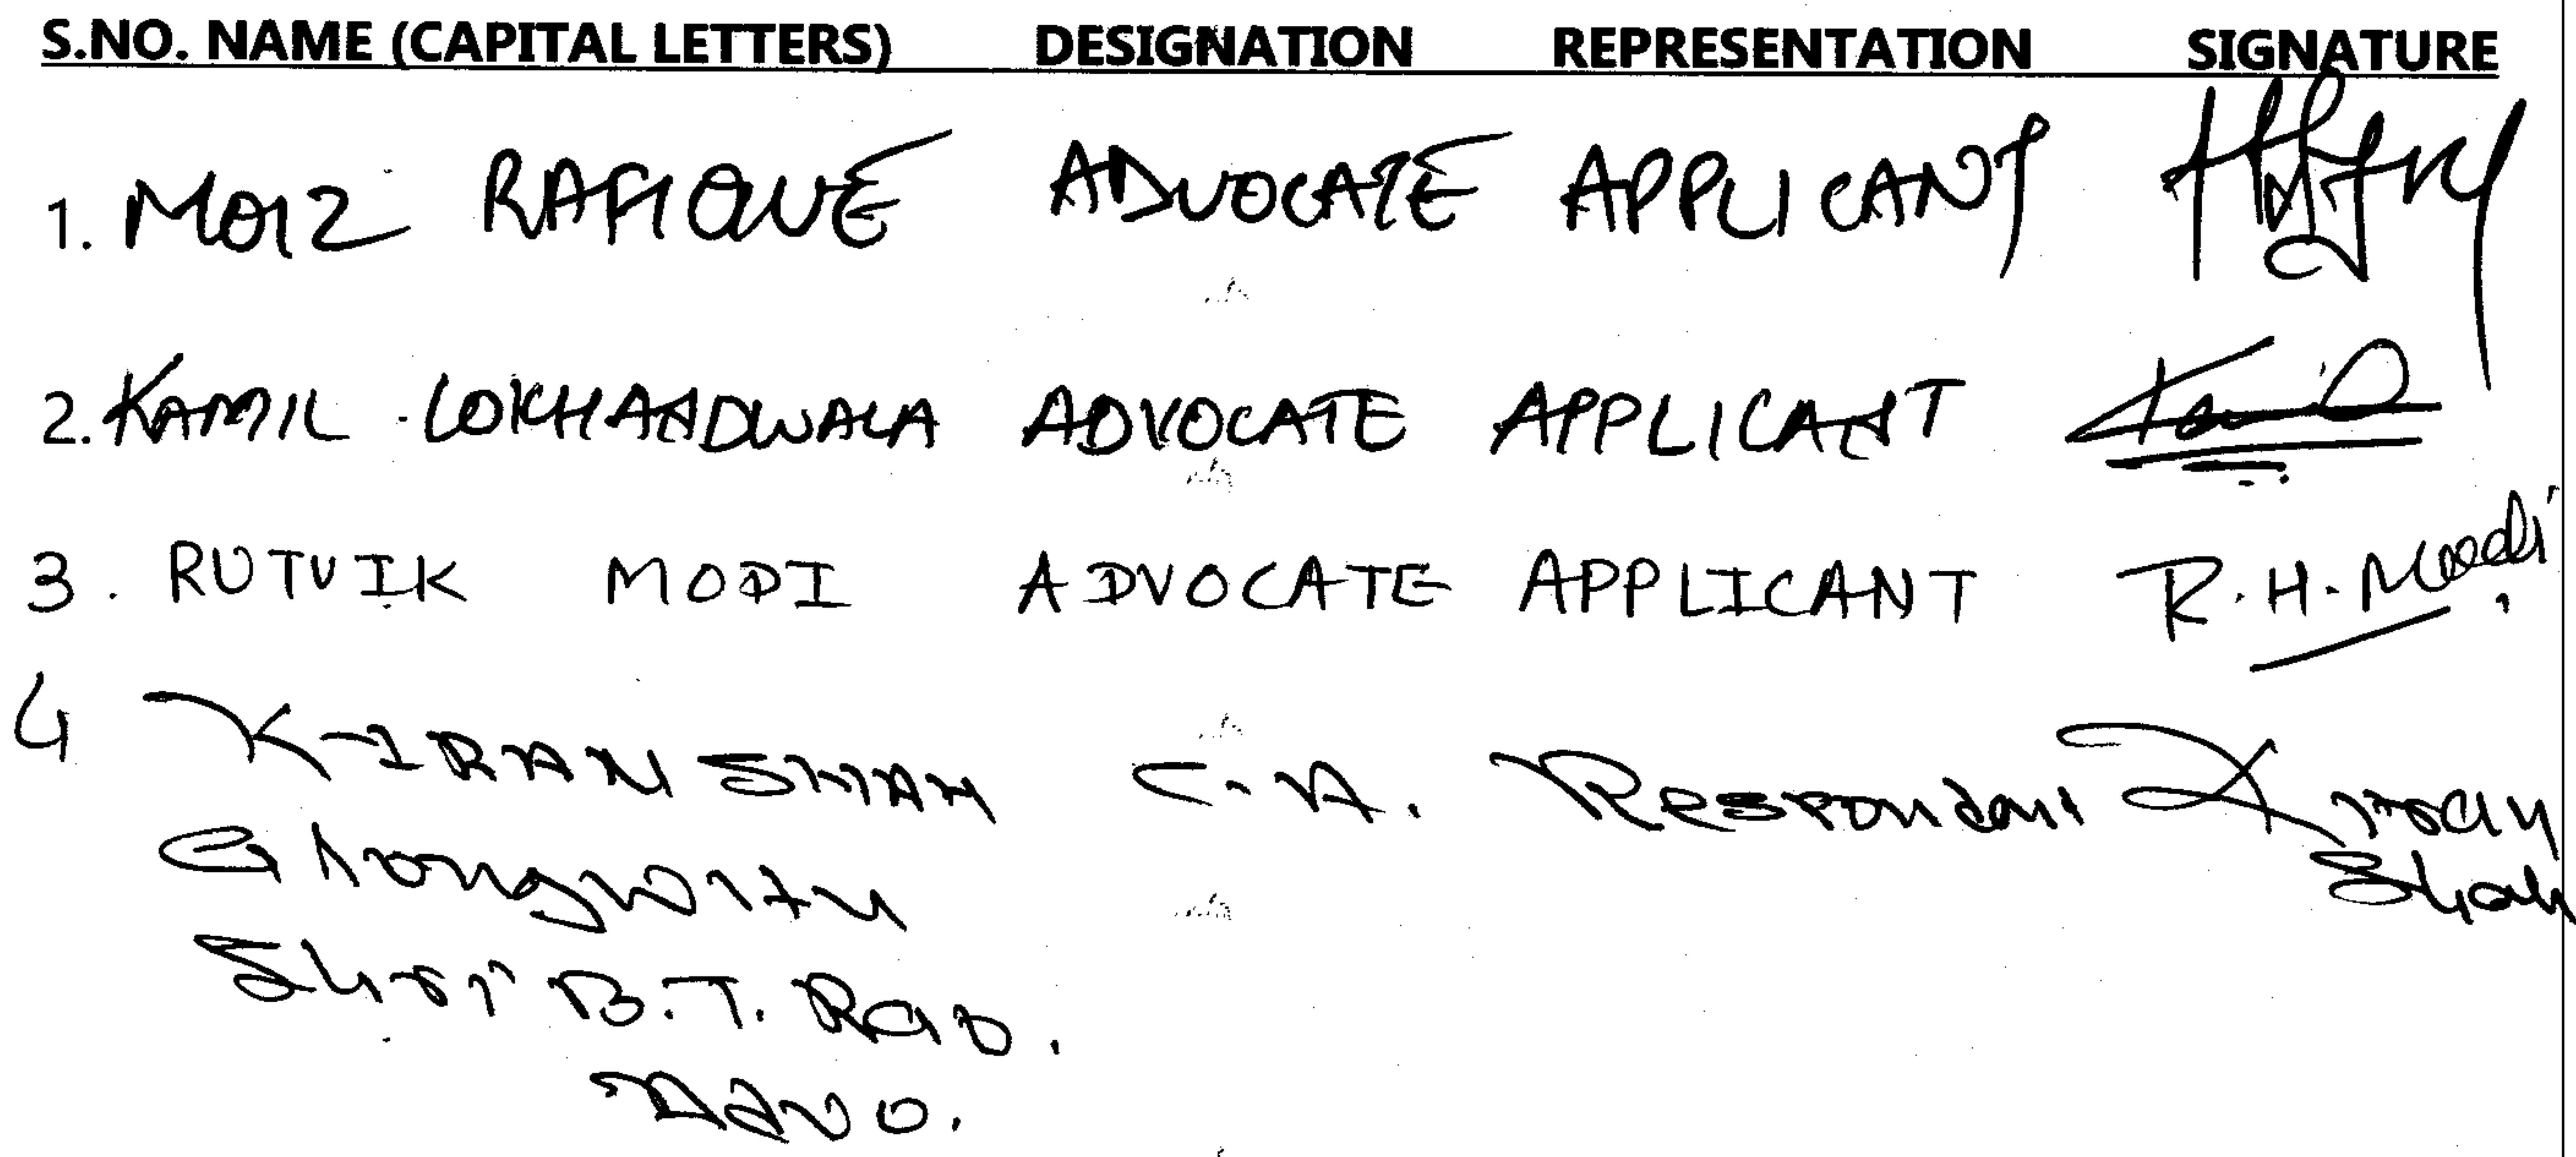 S.NO. NAME (CAPITAL LETTERS) DESIGNATION REPRESENTATION SIGNATURE
1. MOIZ RAFIQUE ADVOCATE APPLICANT
2. KAMIL LOKHANDWALA ADVOCATE APPLICANT Kamil
3. RUTVIK MODI ADVOCATE APPLICANT R.H. Modi
4 KIRAN SHAH C.A. Respondent Kiran
Alongwith Shah
Shri B.T. Rao.
Adv.